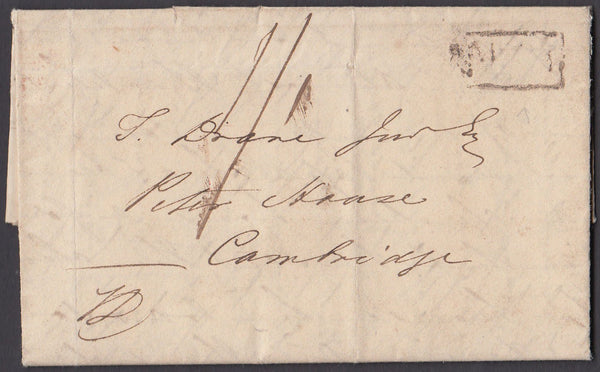 T. Drane Junr Esq
Peter House
Cambridge